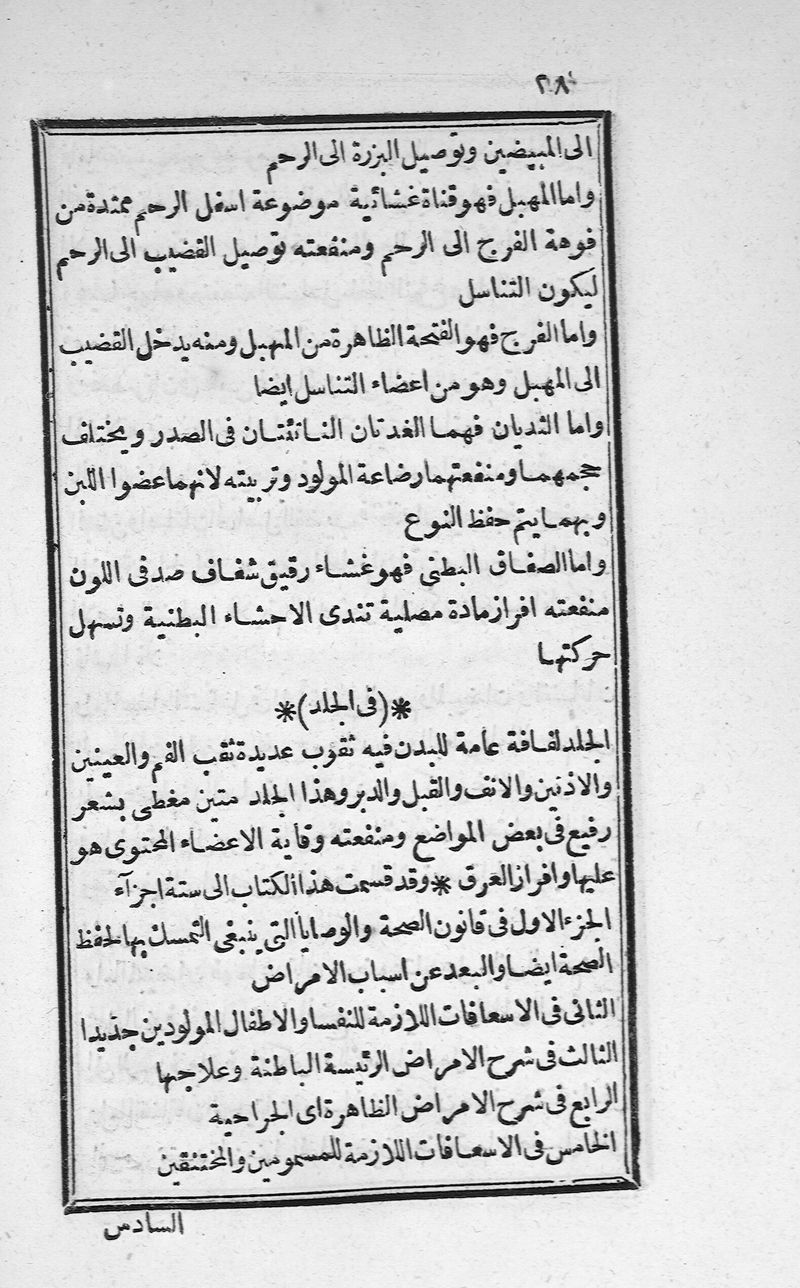 ٢٨
الى المبيضين وتوصيل البزرة الى الرحم
واما المهبل فهو قناة غشائية موضوعة اسفل الرحم ممتدة من
فوهة الفرج الى الرحم ومنفعته توصيل القضيب الى الرحم
ليكون التناسل
واما الفرج فهو الفتحة الظاهرة من المهبل ومنه يدخل القضيب
الى المهبل وهو من اعضاء التناسل ايضا
واما الثديان فهما الغدتان الناتئتان فى الصدر ويختلف
حجمهما ومنفعتهما رضاعة المولود وتربيته لانهما عضوا اللبن
وبهما يتم حفظ النوع
واما الصفاق البطنى فهو غشاء رقيق شفاف صدفى اللون
منفعته افراز مادة مصلية تندى الاحشاء البطنية وتسهل
حركتها
*(فى الجلد)*
الجلد لفافة عامة للبدن فيه ثقوب عديدة ثقب الفم والعينين
والاذنين والانف والقبل والدبر وهذا الجلد متين مغطى بشعر
رفيع فى بعض المواضع ومنفعته وقاية الاعضاء المحتوى هو
عليها وافراز العرق * وقد قسمت هذا الكتاب الى ستة اجزآء
الجزء الاول فى قانون الصحة والوصايا التى ينبغى التمسك بها لحفظ
الصحة ايضا والبعد عن اسباب الامراض
الثانى فى الاسعافات اللازمة للنفسا والاطفال المولودين جديدا
الثالث فى شرح الامراض الرئيسة الباطنة وعلاجها
الرابع فى شرح الامراض الظاهرة اى الجراحية
الخامس فى الاسعافات اللازمة للمسمومين والمختنقين
السادس